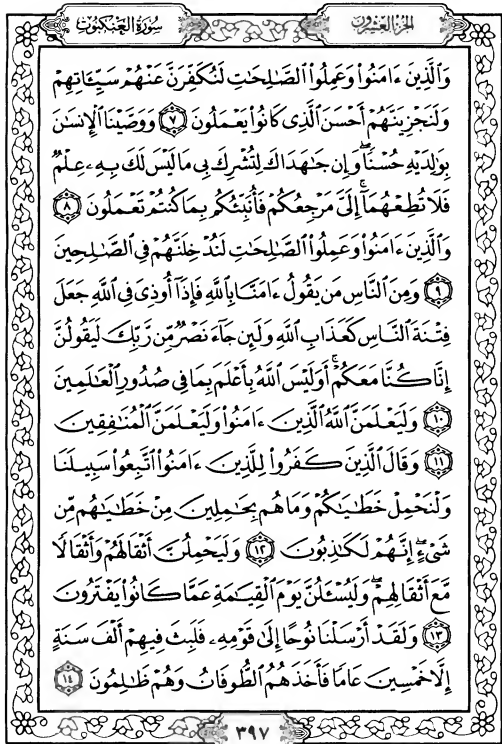 الجزء العشرون
سورة العنكبوت
وَٱلَّذِينَ ءَامَنُوا۟ وَعَمِلُوا۟ ٱلصَّٰلِحَٰتِ لَنُكَفِّرَنَّ عَنْهُمْ سَيِّـَٔاتِهِمْ
وَلَنَجْزِيَنَّهُمْ أَحْسَنَ ٱلَّذِى كَانُوا۟ يَعْمَلُونَ ٧ وَوَصَّيْنَا ٱلْإِنسَٰنَ
بِوَٰلِدَيْهِ حُسْنًا ۖ وَإِن جَٰهَدَاكَ لِتُشْرِكَ بِى مَا لَيْسَ لَكَ بِهِۦ عِلْمٌ
فَلَا تُطِعْهُمَآ ۚ إِلَىَّ مَرْجِعُكُمْ فَأُنَبِّئُكُم بِمَا كُنتُمْ تَعْمَلُونَ ٨
وَٱلَّذِينَ ءَامَنُوا۟ وَعَمِلُوا۟ ٱلصَّٰلِحَٰتِ لَنُدْخِلَنَّهُمْ فِى ٱلصَّٰلِحِينَ
٩ وَمِنَ ٱلنَّاسِ مَن يَقُولُ ءَامَنَّا بِٱللَّهِ فَإِذَآ أُوذِىَ فِى ٱللَّهِ جَعَلَ
فِتْنَةَ ٱلنَّاسِ كَعَذَابِ ٱللَّهِ وَلَئِن جَآءَ نَصْرٌ مِّن رَّبِّكَ لَيَقُولُنَّ
إِنَّا كُنَّا مَعَكُمْ ۚ أَوَلَيْسَ ٱللَّهُ بِأَعْلَمَ بِمَا فِى صُدُورِ ٱلْعَٰلَمِينَ
١٠ وَلَيَعْلَمَنَّ ٱللَّهُ ٱلَّذِينَ ءَامَنُوا۟ وَلَيَعْلَمَنَّ ٱلْمُنَٰفِقِينَ
١١ وَقَالَ ٱلَّذِينَ كَفَرُوا۟ لِلَّذِينَ ءَامَنُوا۟ ٱتَّبِعُوا۟ سَبِيلَنَا
وَلْنَحْمِلْ خَطَٰيَٰكُمْ وَمَا هُم بِحَٰمِلِينَ مِنْ خَطَٰيَٰهُم مِّن
شَىْءٍ ۖ إِنَّهُمْ لَكَٰذِبُونَ ١٢ وَلَيَحْمِلُنَّ أَثْقَالَهُمْ وَأَثْقَالًا
مَّعَ أَثْقَالِهِمْ ۖ وَلَيُسْـَٔلُنَّ يَوْمَ ٱلْقِيَٰمَةِ عَمَّا كَانُوا۟ يَفْتَرُونَ
١٣ وَلَقَدْ أَرْسَلْنَا نُوحًا إِلَىٰ قَوْمِهِۦ فَلَبِثَ فِيهِمْ أَلْفَ سَنَةٍ
إِلَّا خَمْسِينَ عَامًا فَأَخَذَهُمُ ٱلطُّوفَانُ وَهُمْ ظَٰلِمُونَ ١٤
٣٩٧